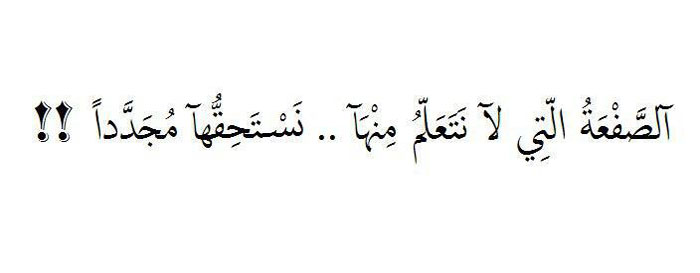 آلصَّفْعَةُ الَّتِي لآ نَتَعَلّمُ مِنْهَآ .. نَسْـتَحِقُّهآ مُجَدَّداً !!